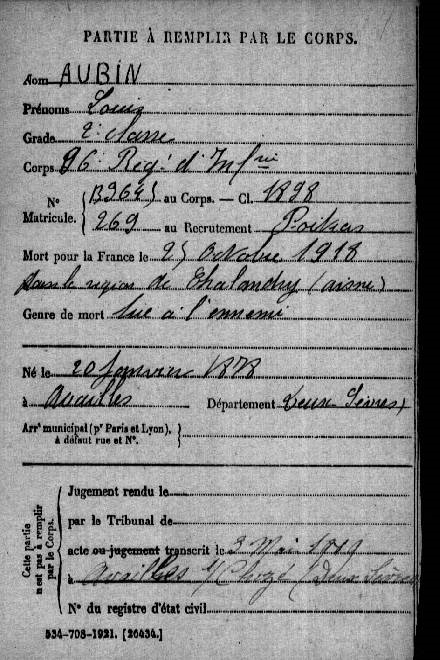 PARTIE À REMPLIR PAR LE CORPS.
Nom AUBIN
Prénoms Louis
Grade 2e classe
Corps 96 Reg.t d'Infrie
N° Matricule. { au Corps. — Cl. 1898
269 au Recrutement Poitiers
Mort pour la France le 25 Octobre 1918
dans la région de Chalandry (aisne)
Genre de mort tué à l'ennemi
Né le 20 Janvier 1878
à Availles Département Deux Sèvres)
Arrt municipal (pr Paris et Lyon), à défaut rue et N°. }
Cette partie n'est pas à remplir par le Corps. {
Jugement rendu le
par le Tribunal de
acte ou jugement transcrit le 3 Mai 1919
à Availles s/ Chizé (Deux Sèvres
N° du registre d'état civil
534-708-1921. [26434.]